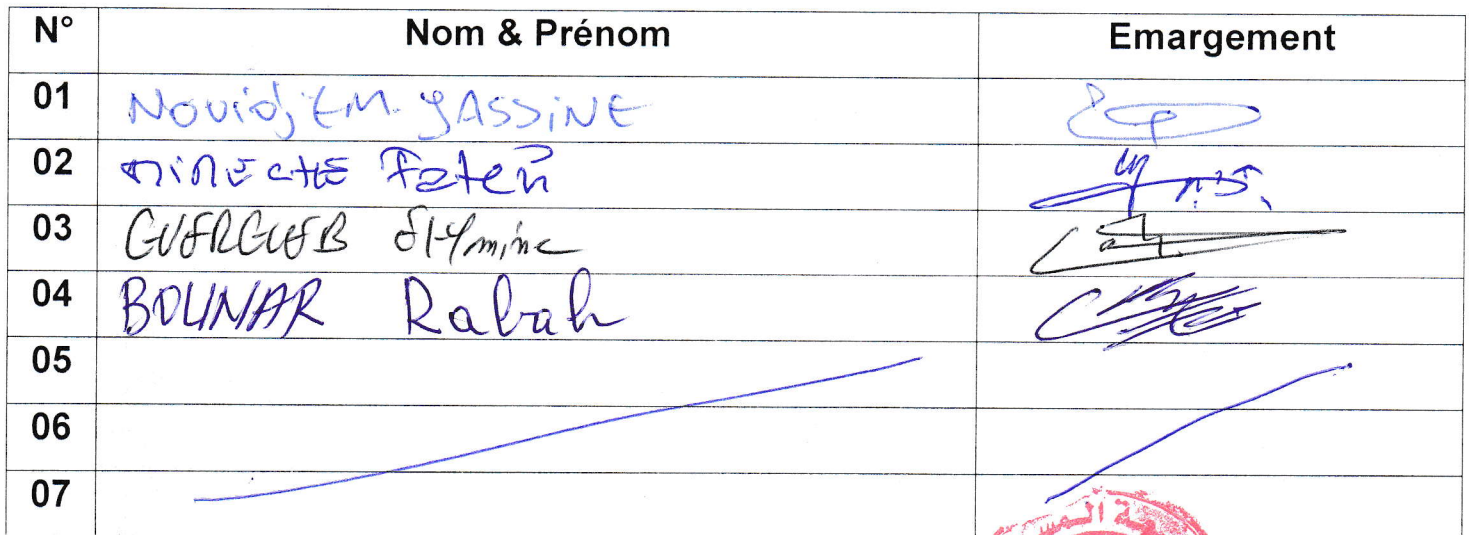 N° Nom & Prénom Emargement
01 NOUidjEM. YASSiNE
02 Fateh
03 GUERGUEB
04 BOUNAR Rabah
05
06
07